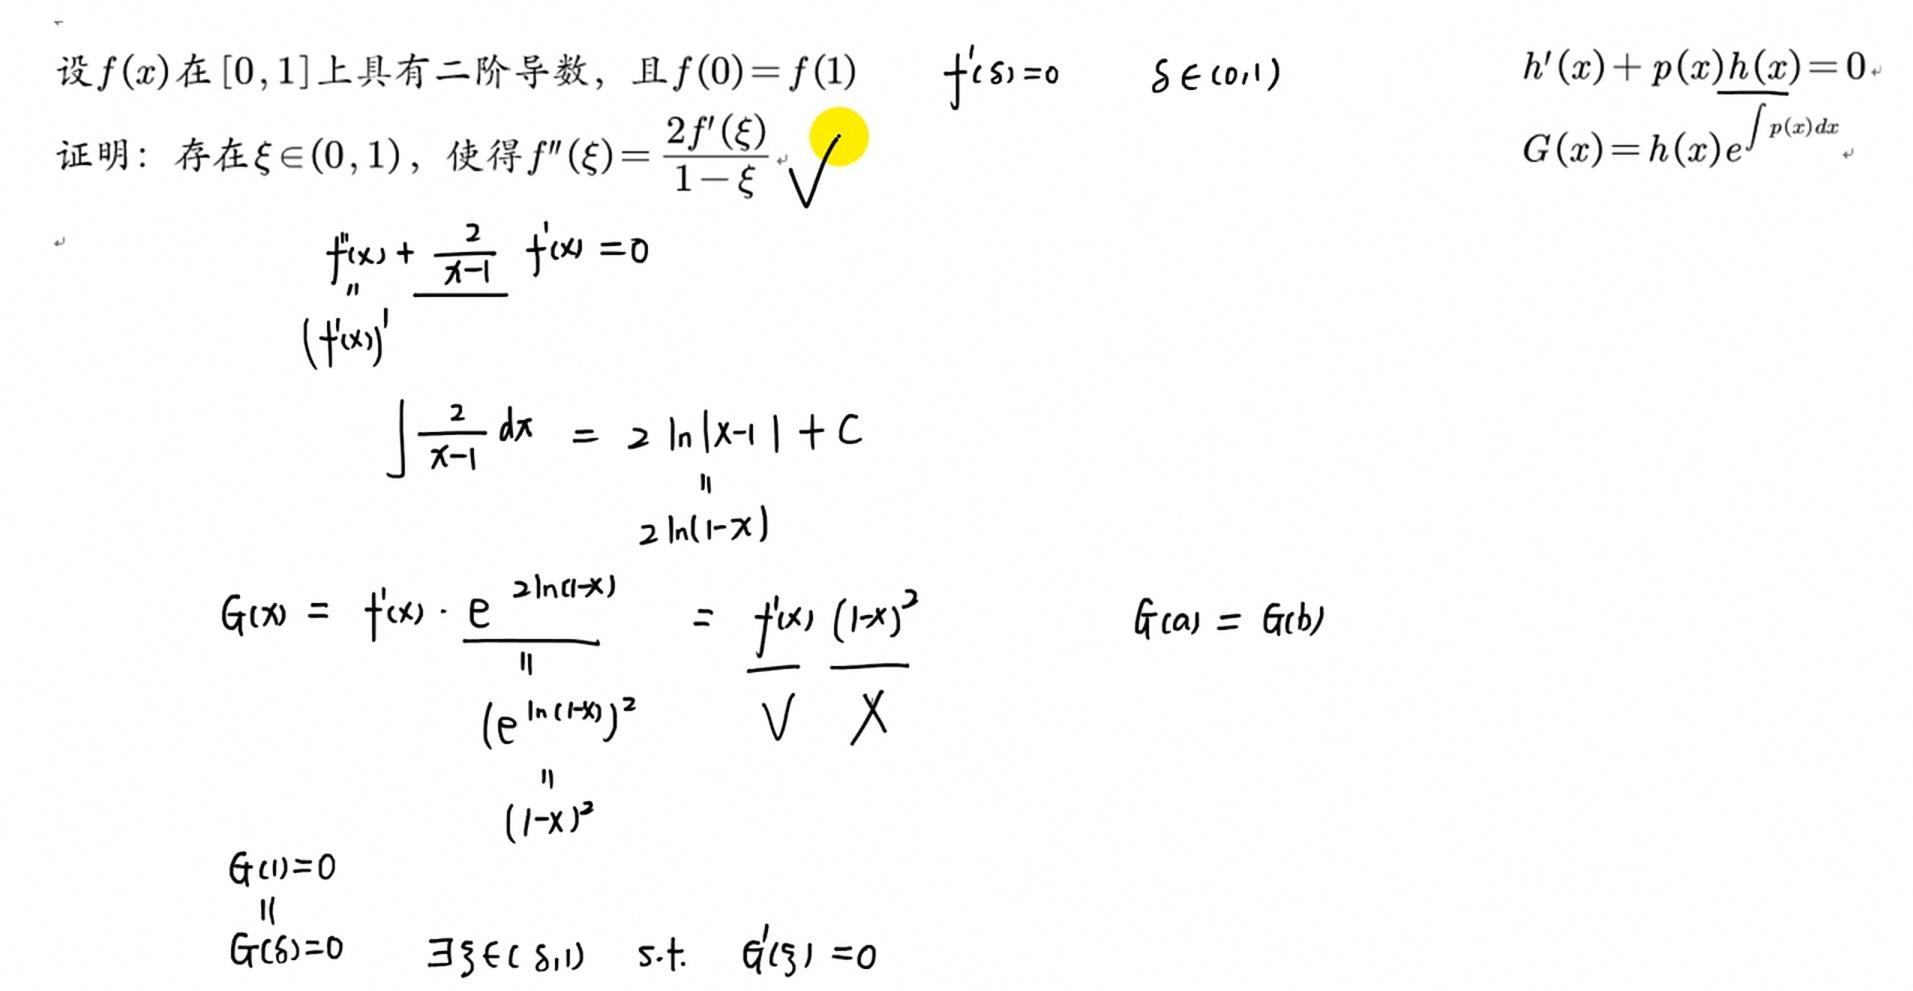 设f(x)在[0,1]上具有二阶导数，且f(0)=f(1)  f'(δ)=0  δ∈(0,1)  h'(x)+p(x)h(x)=0
证明：存在ξ∈(0,1)，使得f''(ξ)=2f'(ξ)/(1-ξ) √  G(x)=h(x)e^{∫p(x)dx}
f''(x)+ 2/(x-1) f'(x)=0
"
(f'(x))'
∫ 2/(x-1) dx = 2 ln|x-1|+C
"
2 ln(1-x)
G(x) = f'(x)·e^{2ln(1-x)} = f'(x)(1-x)²  G(a) = G(b)
"
(e^{ln(1-x)})²  √ ×
"
(1-x)²
G(1)=0
"
G(δ)=0  ∃ξ∈(δ,1)  s.t.  G'(ξ)=0